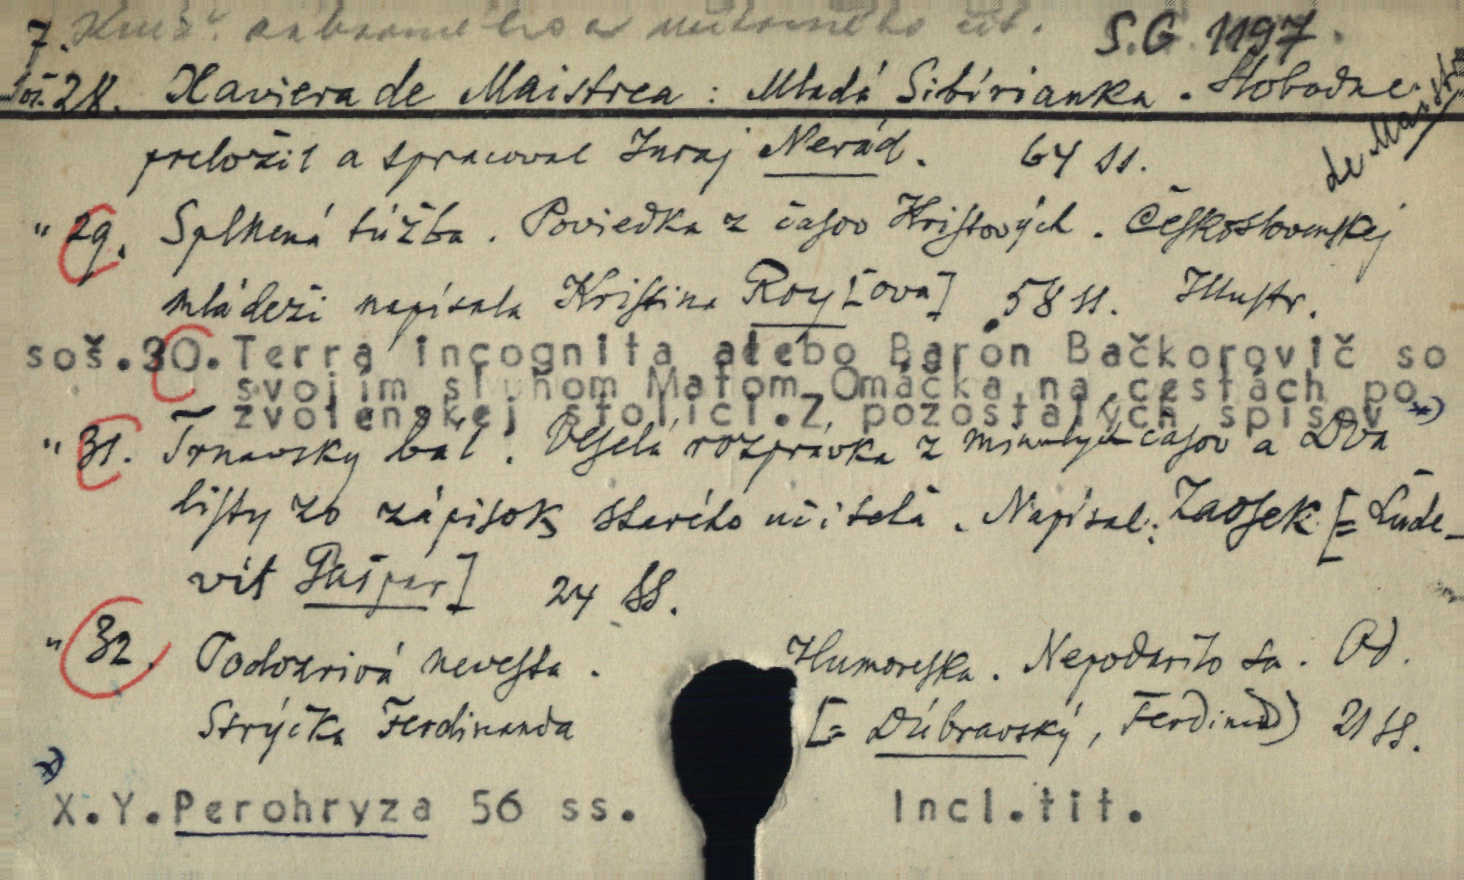 7. Kniž. zábavného a S.G. 1197.
Soš. 28. Xaviera de Maistrea : Mladá Sibírianka. Slobodne
de Maistre
preložil a spracoval Juraj Nerád. 64 ss.
" 29. Splnená túžba. Poviedka z časov Kristových. Československej
mládeži napísala Kristina Roy[ová]. 58 ss. Illustr.
soš.30. Terra incognita alebo Barón Bačkorovič so
svojím sluhom Maťom Omáčka na cestách po
zvolenskej stolici. Z pozostalých spisov *)
" 31. Trnavský bál. Veselá rozprávka z minulých časov a Dva
listy zo zápisok starého učiteľa. Napísal: Zaosek [= Ľude-
vít Gašpar] 24 ss.
" 32. Podozrivá nevesta. Humoreska. Nepodarilo sa. Od.
Strýčka Ferdinanda [= Dúbravský, Ferdinand) 21 ss.
*)
X.Y. Perohryza 56 ss. Incl.tit.